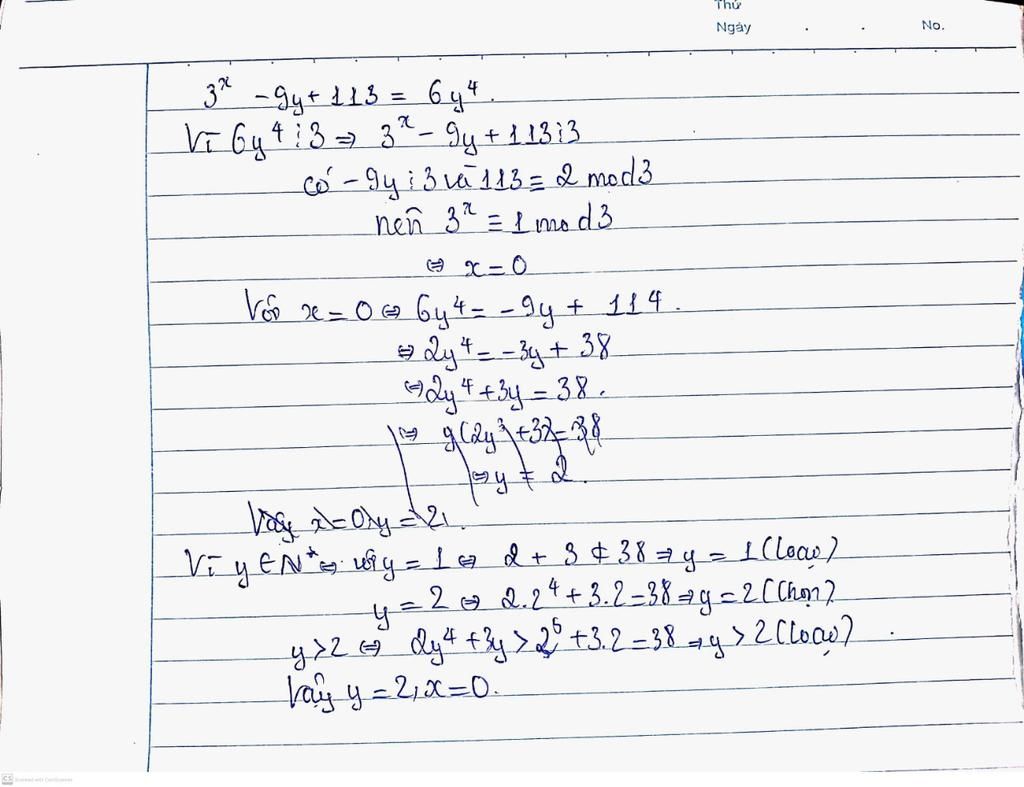 Thứ
Ngày . . No.
3^x - 9y + 113 = 6y^4.
Vì 6y^4 ⋮ 3 ⇒ 3^x - 9y + 113 ⋮ 3
có -9y ⋮ 3 và 113 ≡ 2 mod 3
nên 3^x ≡ 1 mod 3
⇔ x = 0
Với x = 0 ⇔ 6y^4 = -9y + 114.
⇔ 2y^4 = -3y + 38
⇔ 2y^4 + 3y = 38.
⇔ y(2y^3 + 3) = 38
⇔ y = 2.
Vậy x = 0, y = 2.
Vì y ∈ N* ⇔ với y = 1 ⇔ 2 + 3 ≠ 38 ⇒ y = 1 (loại)
y = 2 ⇔ 2.2^4 + 3.2 = 38 ⇒ y = 2 (Chọn)
y > 2 ⇔ 2y^4 + 3y > 2^5 + 3.2 = 38 ⇒ y > 2 (loại).
Vậy y = 2, x = 0.
CS Scanned with CamScanner